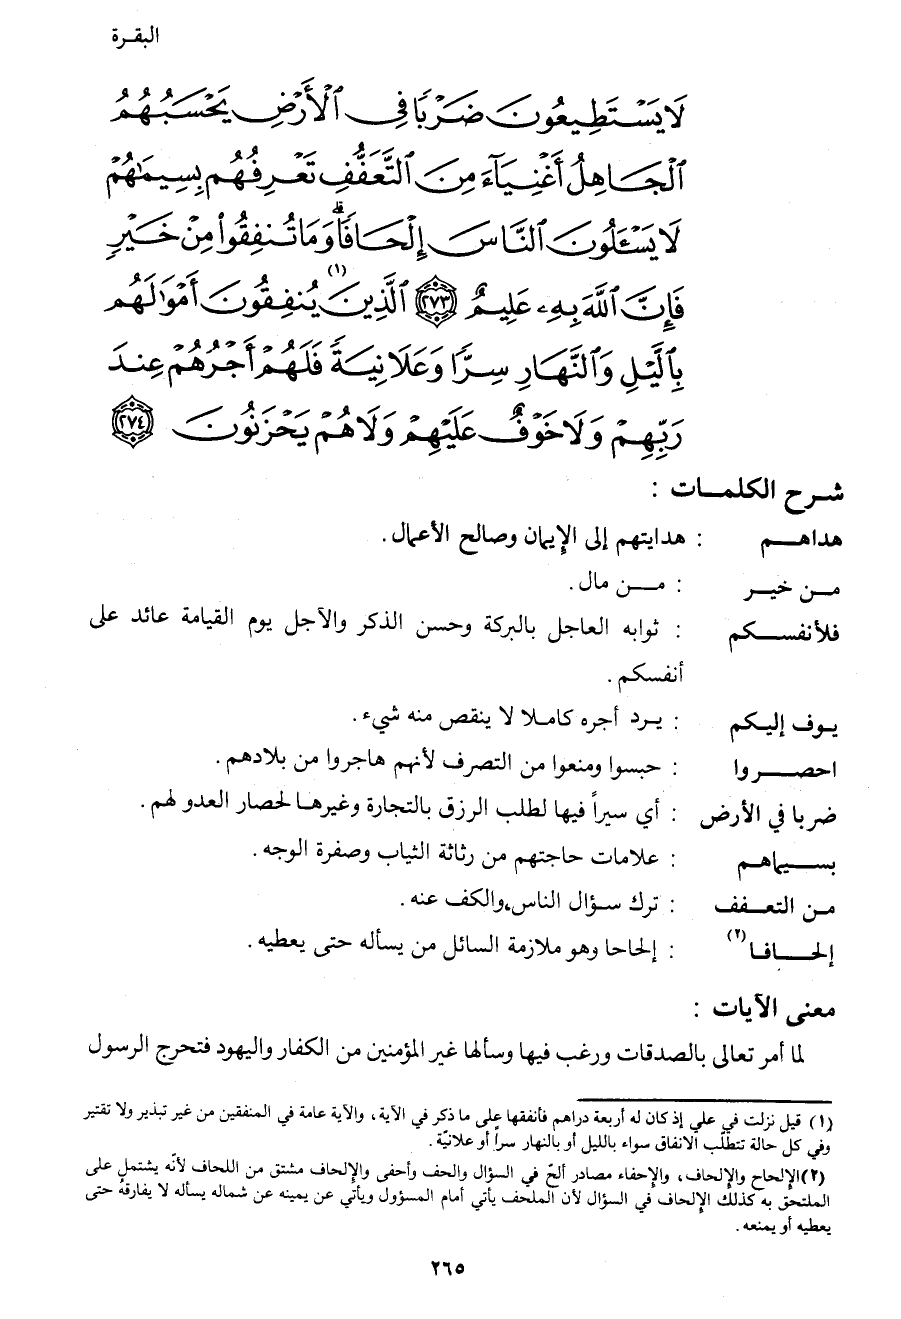 البقـرة
لَا يَسْتَطِيعُونَ ضَرْبًا فِي ٱلْأَرْضِ يَحْسَبُهُمُ
ٱلْجَاهِلُ أَغْنِيَآءَ مِنَ ٱلتَّعَفُّفِ تَعْرِفُهُم بِسِيمَٰهُمْ
لَا يَسْـَٔلُونَ ٱلنَّاسَ إِلْحَافًاۗ وَمَا تُنفِقُوا۟ مِنْ خَيْرٍ
فَإِنَّ ٱللَّهَ بِهِۦ عَلِيمٌ ﴿٢٧٣﴾ ٱلَّذِينَ (١) يُنفِقُونَ أَمْوَٰلَهُم
بِٱلَّيْلِ وَٱلنَّهَارِ سِرًّا وَعَلَانِيَةً فَلَهُمْ أَجْرُهُمْ عِندَ
رَبِّهِمْ وَلَا خَوْفٌ عَلَيْهِمْ وَلَا هُمْ يَحْزَنُونَ ﴿٢٧٤﴾
شـرح الكلمـات :
هداهـــم : هدايتهم إلى الإيمان وصالح الأعمال .
مـن خيـر : مــن مال .
فلأنفســكم : ثوابه العاجل بالبركة وحسن الذكر والآجل يوم القيامة عائد على
أنفسكم .
يـوف إليكم : يـرد أجره كامـلا لا ينقص منه شيء .
احصـــروا : حبسوا ومنعوا من التصرف لأنهم هاجروا من بلادهم .
ضربا في الأرض : أي سيراً فيها لطلب الرزق بالتجارة وغيرهـا لحصار العدو لهم .
بســـيماهـم : علامات حاجتهم من رثاثة الثياب وصفرة الوجه .
مـن التعــفف : ترك سـؤال الناس، والكف عنه .
إلحـــافـا (٢) : إلحاحا وهو ملازمة السائل من يسأله حتى يعطيه .
معنى الآيات :
لما أمر تعالى بالصدقات ورغب فيها وسألها غير المؤمنين من الكفار واليهود فتحرج الرسول
(١) قيل نزلت في علي إذ كان له أربعة دراهم فأنفقها على ما ذكر في الآية، والآية عامة في المنفقين من غير تبذير ولا تقتير
وفي كل حالة تتطلّب الانفاق سواء بالليل أو بالنهار سراً أو علانيّة .
(٢) الإلحاح والإلحاف، والإحفاء مصادر ألحّ في السؤال والحف وأحفى والإلحاف مشتق من اللحاف لأنّه يشتمل على
الملتحق به كذلك الإلحاف في السؤال لأن الملحف يأتي أمام المسؤول ويأتي عن يمينه عن شماله يسأله لا يفارقهُ حتى
يعطيه أو يمنعه .
٢٦٥